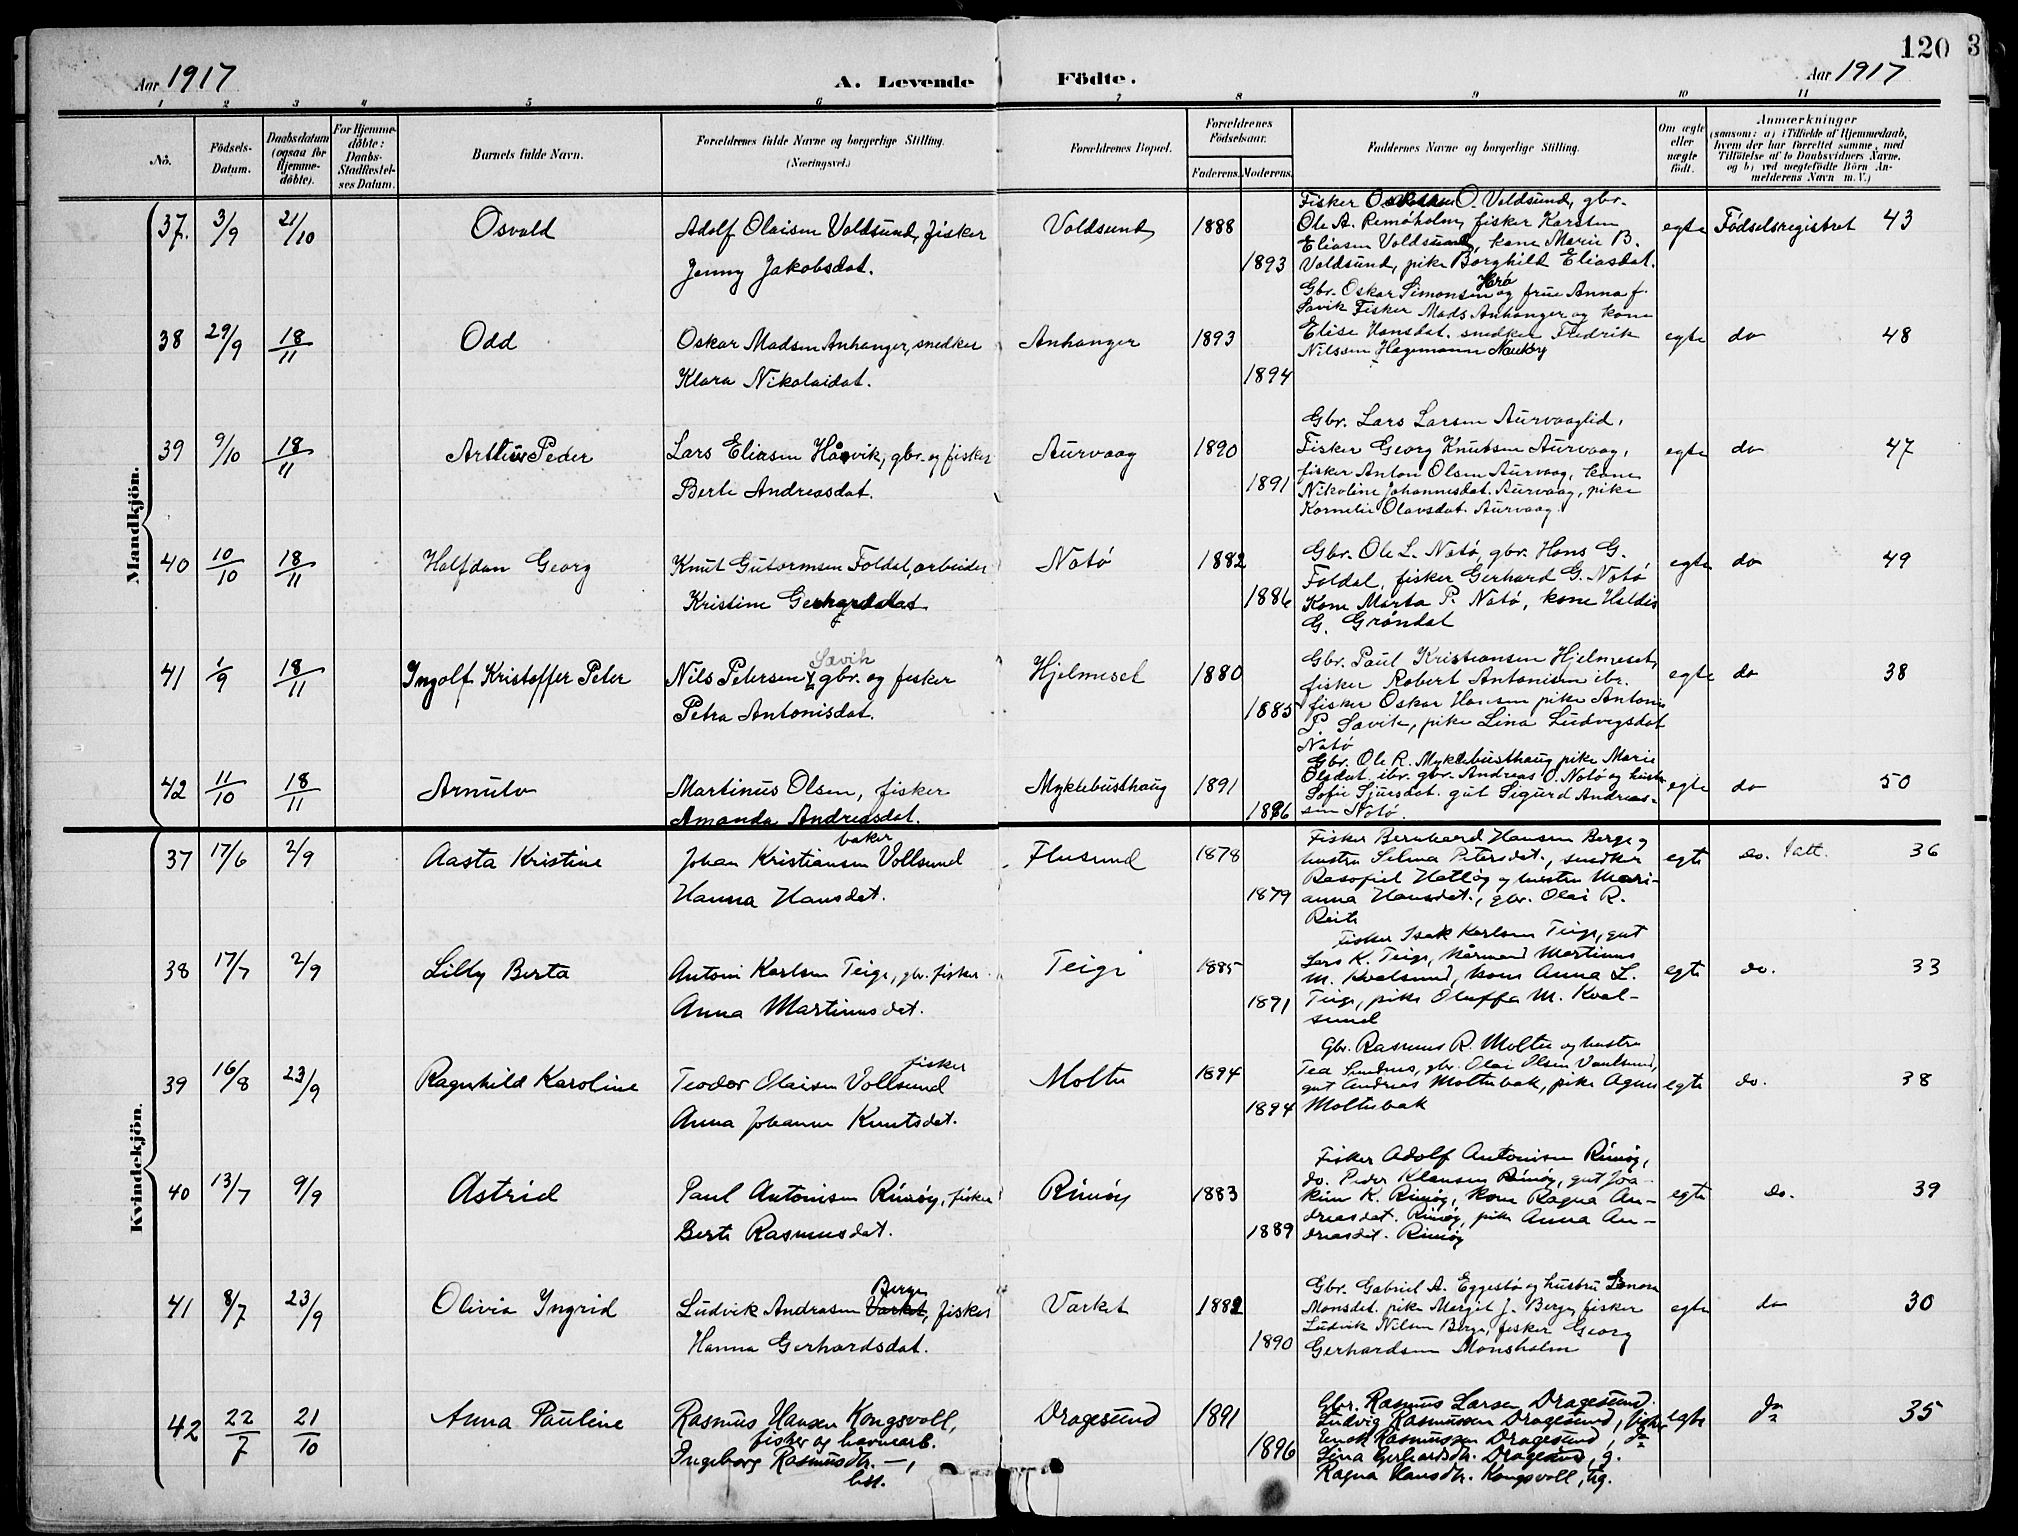 120
Aar 1917
A. Levende Födte.
Aar 1917
1 2 3 4 5 6 7 8 9 10 11
No. Födsels-Datum. Daabsdatum (ogsaa for Hjemme-döbte). For Hjemme-döbte: Daabs-Stadfæstel-ses Datum. Barnets fulde Navn. Forældrenes fulde Navne og borgerlige Stilling. (Næringsvei.) Forældrenes Bopæl. Forældrenes Födselsaar. Faderens. Moderens. Faddernes Navne og borgerlige Stilling. Om ægte eller uægte födt. Anmærkninger
(saasom: a) i Tilfælde af Hjemmedaab,
hvem der har forrettet samme, med
Tilföielse af to Daabsvidners Navne,
og b) ved uægtefödte Börn An-
melderens Navn m. V.)
Mandkjön.
37. 3/9 21/10 Osvald Adolf Olaisen Voldsund, fisker Voldsund 1888 egte Fødselsregistret 43
Jenny Jakobsdat. 1893
Fisker O. Voldsund, gbr.
Ole A. Remøholm, fisker Karsten
Eliasen Voldsund, kone Marie B.
Voldsund, pike Borghild Eliasdat.
38 29/9 18/11 Odd Oskar Madsen Anhanger, snedker Anhanger 1893 egte do 48
Klara Nikolaidat. 1894
Gbr. Oskar Simonsen Herø og frue Anna f.
Savik Fisker Mads Anhanger og kone
Elise Hansdat. snedker Fredrik
Nilssen Hagemann
39 9/10 18/11 Peder Lars Eliasen Håvik, gbr. og fisker Aurvaag 1890 egte do 47
Berte Andreasdat. 1891
Gbr. Lars Larsen Aurvaaglid,
Fisker Georg Knutsen Aurvaag,
fisker Anton Olsen Aurvaag, kone
Nikoline Johannesdat. Aurvaag, pike
Kornelie Olavsdat. Aurvaag.
40 10/10 18/11 Halfdan Georg Knut Gutormsen Foldal, arbeider Notø 1882 egte do 49
Kristine Gerhardsdat 1886
Gbr. Ole L. Notø, gbr. Hans G.
Foldal, fisker Gerhard G. Notø
Kone Marta P. Notø, kone Haldis
G. Grøndal
41 1/9 18/11 Ingolf Kristoffer Peter Nils Petersen Savik gbr. og fisker Hjelmeset 1880 egte do 38
Petra Antonisdat. 1885
Gbr. Paul Kristiansen Hjelmeset,
fisker Robert Antonisen ibr.
fisker Oskar Hansen pike Antonie
P. Savik, pike Lina Ludvigsdat
Notø
42 11/10 18/11 Arnulv Martinus Olsen, fisker Myklebusthaug 1891 egte do 50
Amanda Andreasdat. 1886
Gbr. Ole R. Myklebusthaug pike Marie
Olsdat. ibr. gbr. Andreas O. Notø og hustru
Sofie Sjursdat. gut Sigurd Andreas-
sen Notø.
Kvindekjön.
37 17/6 2/9 Aasta Kristine Johan Kristiansen Vollsund baker Flusund 1878 egte do. 36
Hanna Hansdat. 1879
Fisker Bernhard Hansen Berge og
hustru Selma Petersdat., snedker
Hatløy og hustru Mari-
anna Hansdat., gbr. Olai R.
Reite
38 17/7 2/9 Lilly Berta Antoni Karlsen Teige, gbr. fisker Teige 1885 egte do. 33
Anna Martinusdat. 1891
Fisker Isak Karlsen Teige, gut
Lars K. Teige, Martinus
M. Kvalsund, kone Anna L.
Teige, pike Oluffa M. Kval-
sund
39 16/8 23/9 Ragnhild Karoline Teodor Olaisen Vollsund fisker Moltu 1894 egte do. 38
Anna Johanne Knutsdat. 1894
Gbr. Rasmus R. Moltu og hustru
Tea Sundnes, gbr. Olai Olsen Vaulsund,
gut Andreas Moltubak, pike Agnes
Moltubak
40 13/7 9/9 Astrid Paul Antonisen Rimøy, fisker Rimøy 1883 egte do. 39
Berte Rasmusdat. 1889
Fisker Adolf Antonisen Rimøy,
do. Peder Klausen Rimøy, gut Joa-
kim K. Rimøy, kone Ragna An-
dreasdat. Rimøy, pike Anna An-
dreasdat. Rimøy
41 8/7 23/9 Olivia Ingrid Ludvik Andreasen Varket Berge, fisker Varket 1882 egte do 30
Hanna Gerhardsdat. 1890
Gbr. Gabriel A. Eggesbø og hustru Lenora
Monsdat. pike Margit J. Berge, fisker
Ludvik Nilsen Berge, fisker Georg
Gerhardsen Monsholm
42 22/7 21/10 Anna Pauline Rasmus Hansen Kongsvoll, Dragesund 1891 egte do 35
fisker og havnearb.
Ingeborg Rasmusdtr. 1896
Gbr. Rasmus Larsen Dragesund.
Ludvig Rasmussen Dragesund, fisker
Enok Rasmussen Dragesund, do
Lina Gerhardsdtr. Dragesund, g.
Ragna Hansdtr. Kongsvoll, ug.